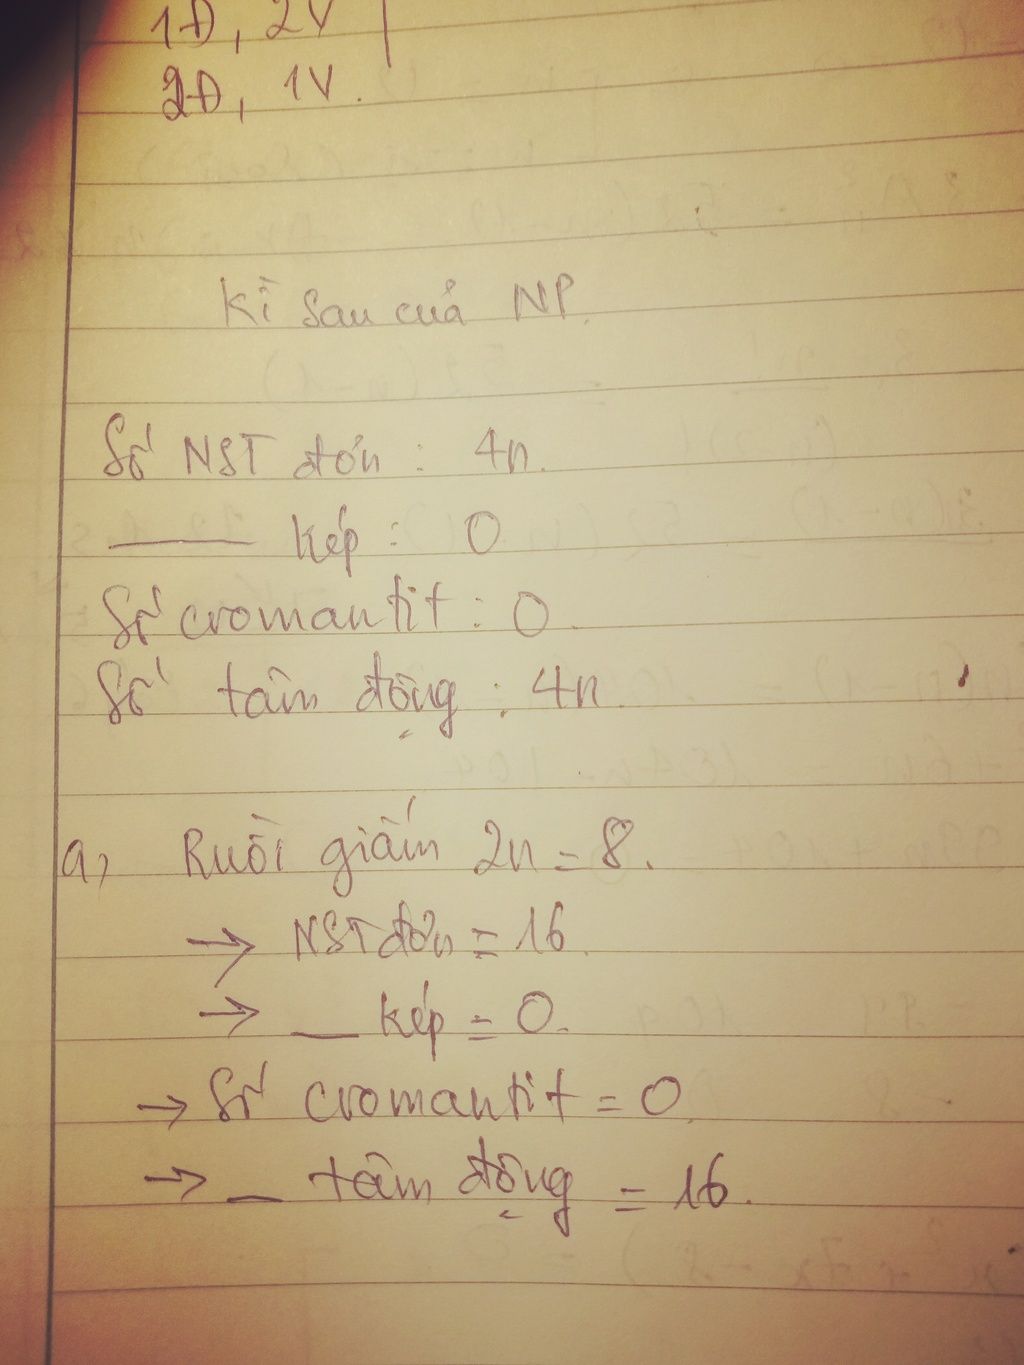 1Đ, 2V
2Đ, 1V.
Kì sau của NP.
Số NST đơn : 4n.
—— kép : 0
Số cromantit : 0.
Số tâm động : 4n.
a, Ruồi giấm 2n = 8.
→ NST đơn = 16.
→ — kép = 0.
→ Số cromantit = 0.
→ — tâm động = 16.